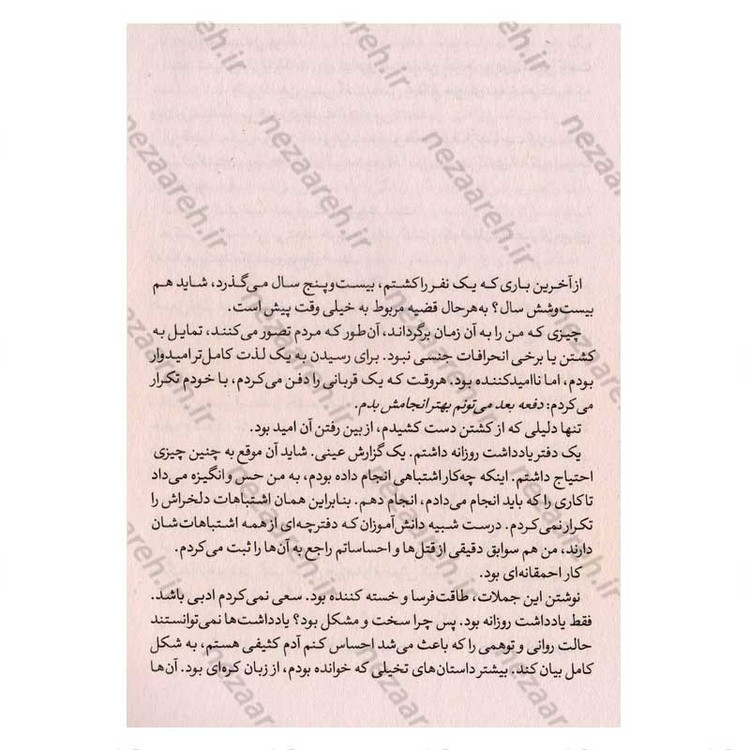 از آخرین باری که یک نفر را کشتم، بیست‌و‌پنج سال می‌گذرد، شاید هم
بیست‌و‌شش سال؟ به‌هرحال قضیه مربوط به خیلی وقت پیش است.
چیزی که من را به آن زمان برگرداند، آن‌طور که مردم تصور می‌کنند، تمایل به
کشتن یا برخی انحرافات جنسی نبود. برای رسیدن به یک لذت کامل‌تر امیدوار
بودم، اما ناامیدکننده بود. هروقت که یک قربانی را دفن می‌کردم، با خودم تکرار
می‌کردم: دفعه بعد می‌تونم بهتر انجامش بدم.
تنها دلیلی که از کشتن دست کشیدم، از بین رفتن آن امید بود.
یک دفتر یادداشت روزانه داشتم. یک گزارش عینی. شاید آن موقع به چنین چیزی
احتیاج داشتم. اینکه چه‌کار اشتباهی انجام داده بودم، به من حس و انگیزه می‌داد
تا کاری را که باید انجام می‌دادم، انجام دهم. بنابراین همان اشتباهات دلخراش را
تکرار نمی‌کردم. درست شبیه دانش‌آموزان که دفترچه‌ای از همه اشتباهات‌شان
دارند، من هم سوابق دقیقی از قتل‌ها و احساساتم راجع به آن‌ها را ثبت می‌کردم.
کار احمقانه‌ای بود.
نوشتن این جملات، طاقت‌فرسا و خسته کننده بود. سعی نمی‌کردم ادبی باشد.
فقط یادداشت روزانه بود. پس چرا سخت و مشکل بود؟ یادداشت‌ها نمی‌توانستند
حالت روانی و توهمی را که باعث می‌شد احساس کنم آدم کثیفی هستم، به شکل
کامل بیان کند. بیشتر داستان‌های تخیلی که خوانده بودم، از زبان کره‌ای بود. آن‌ها
nezaareh.ir